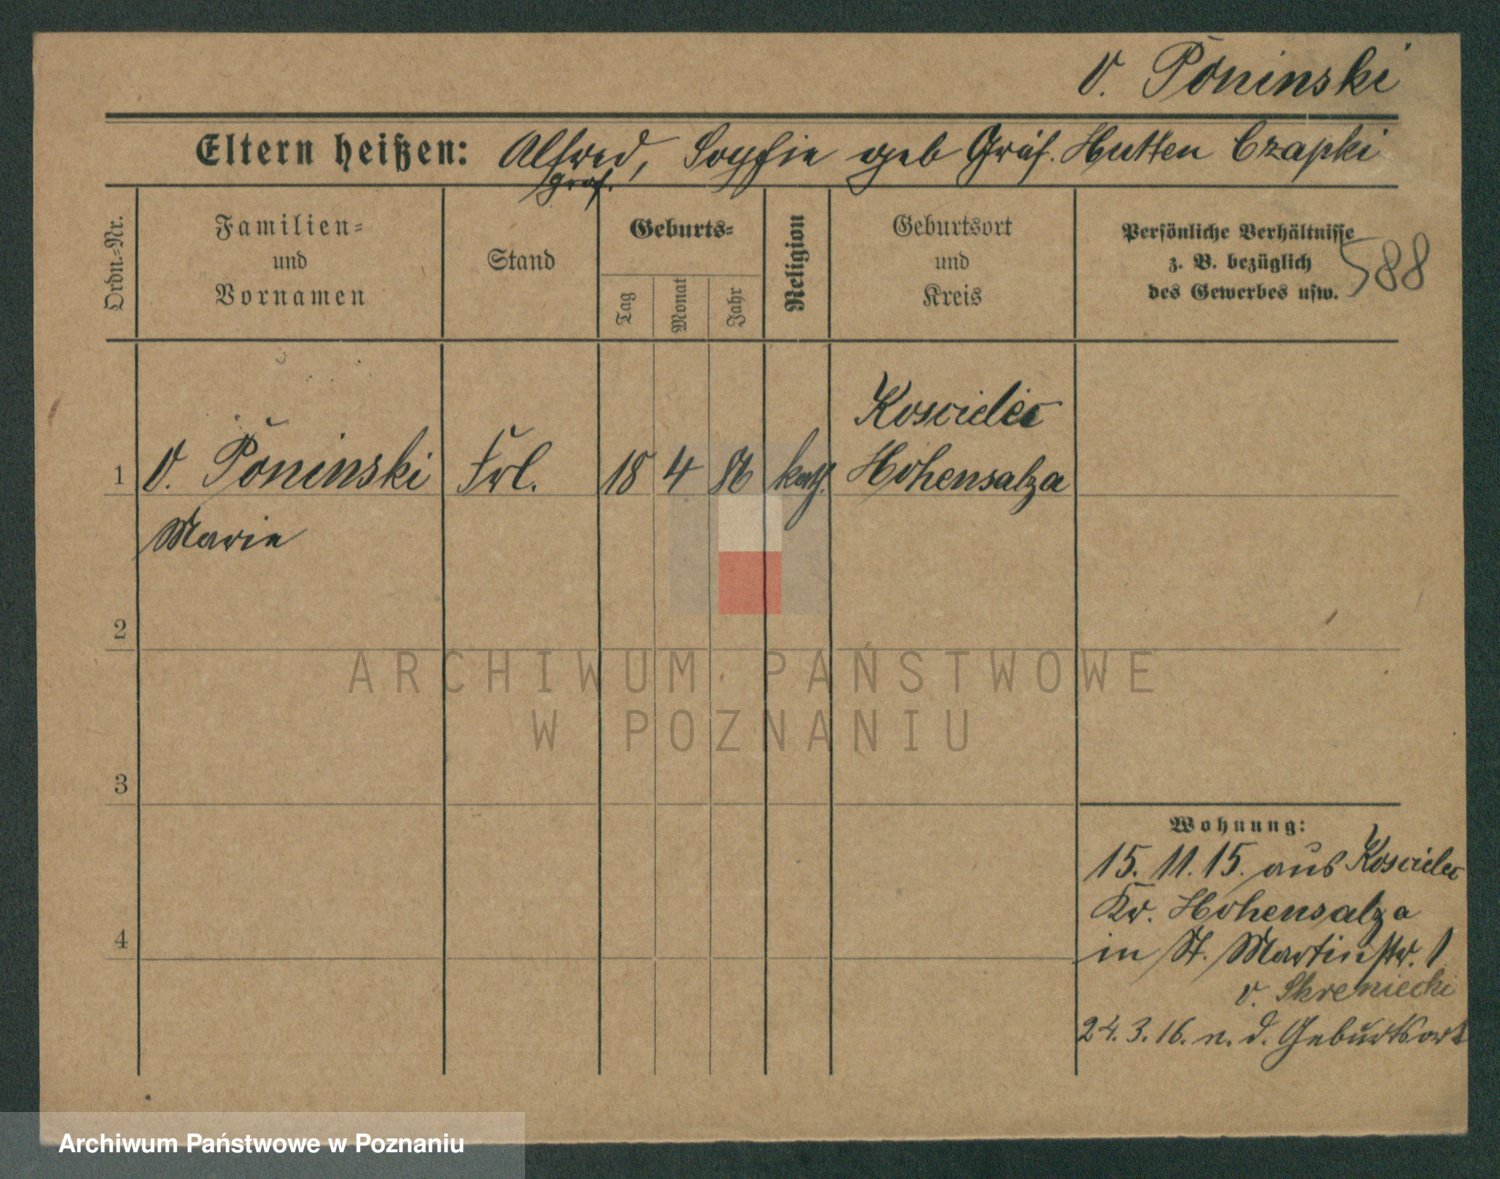 v. Poninski
Eltern heißen: Alfred, Sophie geb Gräf. Hutten Czapki
Graf.
Ordn.=Nr.
Familien=
und
Vornamen
Stand
Geburts=
Tag
Monat
Jahr
Religion
Geburtsort
und
Kreis
Persönliche Verhältnisse
z. B. bezüglich
des Gewerbes usw.
588
1 v. Poninski Frl. 18 4 86 kath. Koscielec
Hohensalza
Marie
2
3
4
Wohnung:
15. 11. 15. aus Koscielec
Kr. Hohensalza
in St. Martinstr. 1
v. Skreniecki
24. 3. 16. n. d. Geburtsort
ARCHIWUM PAŃSTWOWE
W POZNANIU
Archiwum Państwowe w Poznaniu